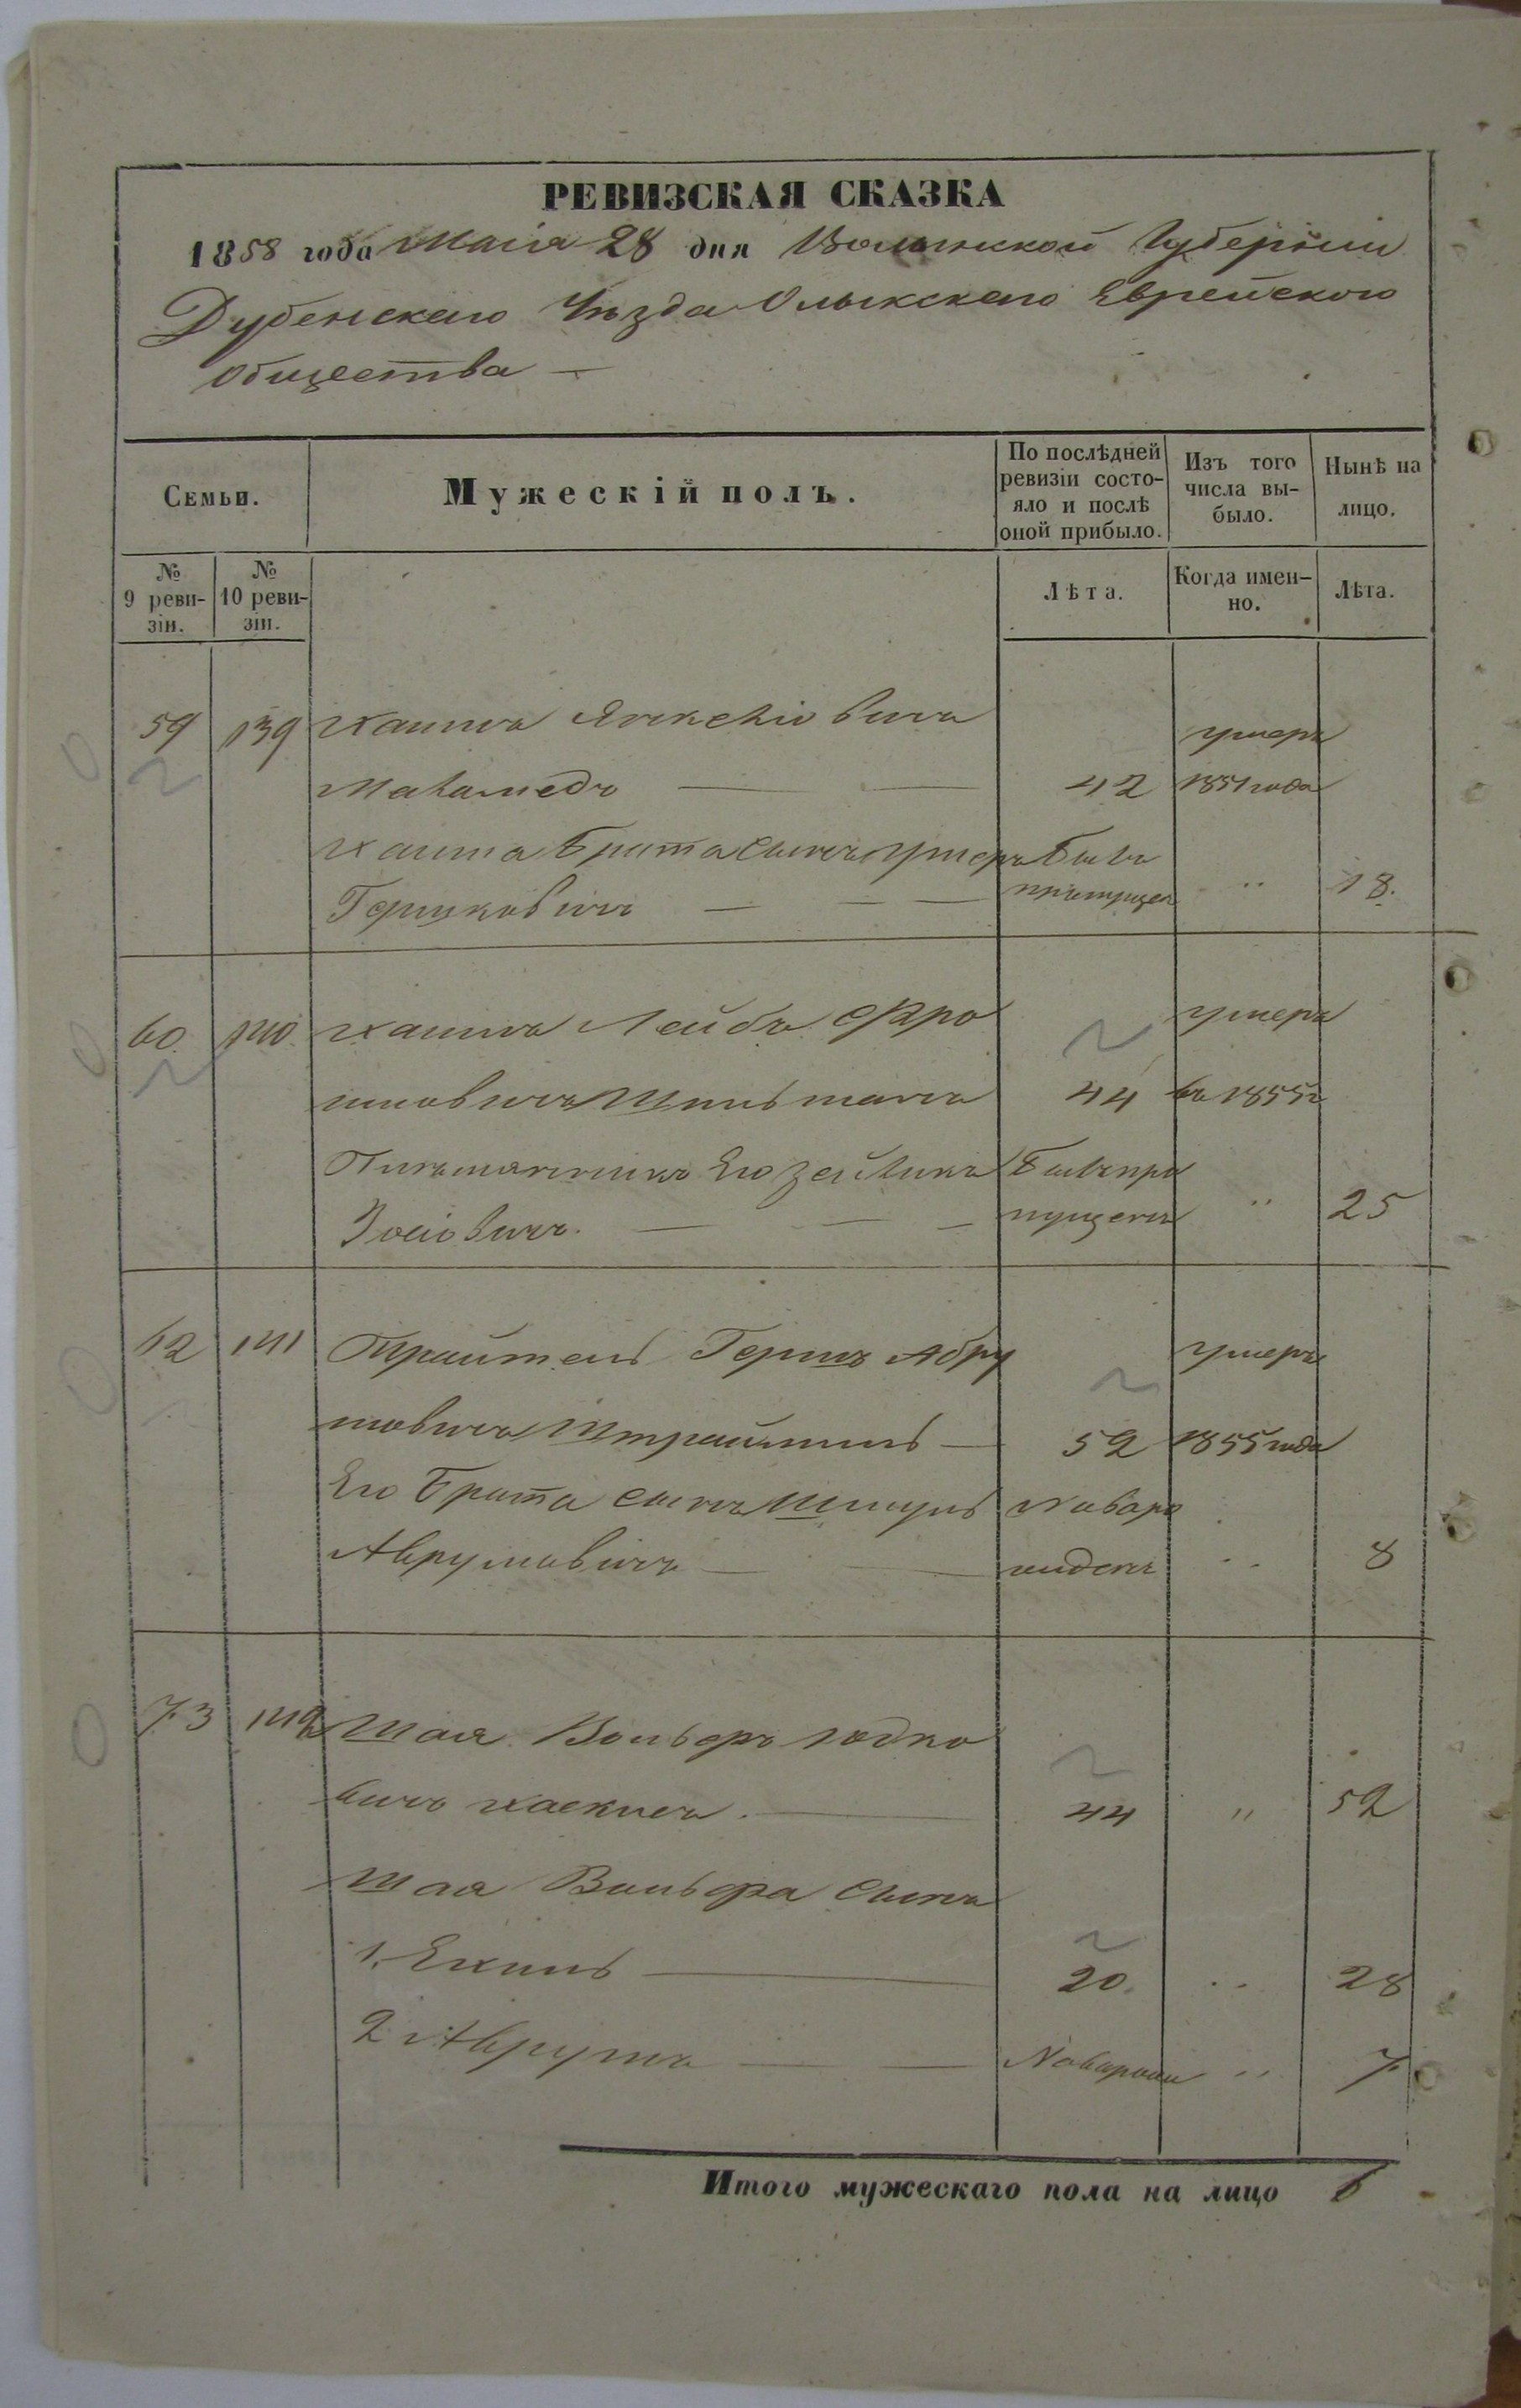 РЕВИЗСКАЯ СКАЗКА
1858 года Маія 28 дня Волынской Губерніи
Дубенскаго Уѣзда Олыкскаго Еврейского
общества —
Семьи.
Мужескій полъ.
По послѣдней ревизіи состояло и послѣ оной прибыло.
Изъ того числа выбыло.
Нынѣ на лицо.
№ 9 ревизіи.
№ 10 ревизіи.
Лѣта.
Когда именно.
Лѣта.
59 139 Хаимъ умеръ
42 1851 года
Хаима Брата сынъ Умеръ Былъ
Гершковичъ — — — пропущен " 18.
60. 140. Хаимъ Лейбъ Фро
умеръ
имовичъ 44 въ 1855 г
Племянникъ Его Зейликъ Былъ про
Іосіовичъ. — — — пущенъ " 25
62 141 Гершъ Абру
умеръ
мовичъ 52 1855 года
Его Брата сынъ Шмуль новоро
Аврумовичъ — — жденъ " 8
73 142 Шая Вольфъ Юдко
вичъ . — 44 " 52
Шая Вольфа сыны
1. Ехиль — 20. " 28
2 Аврумъ — — Новорож " 7.
Итого мужескаго пола на лицо 6